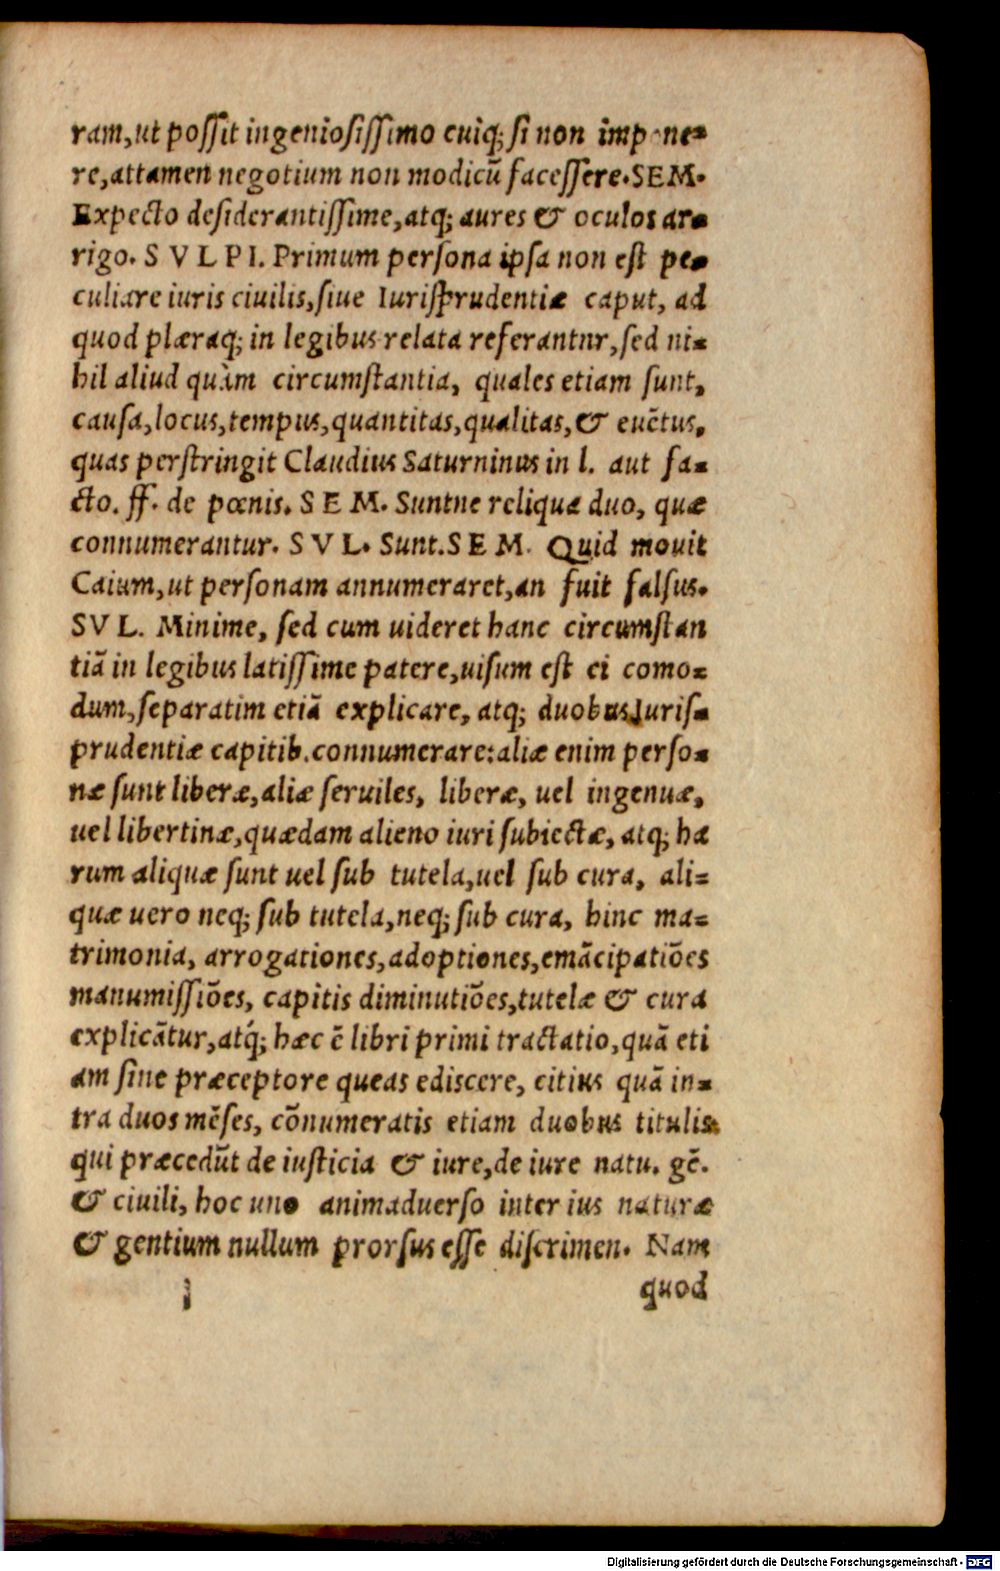 ram,ut poſſit ingenioſiſſimo cuiq; ſi non impone=
re,attamen negotium non modicũ faceſſere.SEM.
Expecto deſiderantiſſime,atq; aures & oculos ar=
rigo. S V L P I. Primum perſona ipſa non eſt pe=
culiare iuris ciuilis,ſiue Iuriſprudentiæ caput, ad
quod plæraq; in legibus relata referantur,ſed ni=
hil aliud quàm circumſtantia, quales etiam ſunt,
cauſa,locus,tempus,quantitas,qualitas,& euẽtus,
quas perſtringit Claudius Saturninus in l. aut fa=
cto. ff. de pœnis. S E M. Suntne reliqua duo, quæ
connumerantur. S V L. Sunt.S E M. Quid mouit
Caium,ut perſonam annumeraret,an fuit falſus.
SV L. Minime, ſed cum uideret hanc circumſtan
tiã in legibus latiſſime patere,uiſum eſt ei como=
dum,ſeparatim etiã explicare, atq; duobus Iuriſ=
prudentiæ capitib.connumerare:aliæ enim perſo=
næ ſunt liberæ,aliæ ſeruiles, liberæ, uel ingenuæ,
uel libertinæ,quædam alieno iuri ſubiectæ, atq; ha
rum aliquæ ſunt uel ſub tutela,uel ſub cura, ali=
quæ uero neq; ſub tutela,neq; ſub cura, hinc ma=
trimonia, arrogationes,adoptiones,emãcipatiões
manumiſſiões, capitis diminutiões,tutelæ & cura
explicãtur,atq́; hæc ẽ libri primi tractatio,quã eti
am ſine præceptore queas ediscere, citius quã in=
tra duos mẽſes, cõnumeratis etiam duobus titulis
qui præcedũt de iuſticia & iure,de iure natu. gẽ.
& ciuili, hoc uno animaduerſo inter ius naturæ
& gentium nullum prorſus eſſe diſcrimen. Nam
i quod
Digitalisierung gefördert durch die Deutsche Forschungsgemeinschaft - DFG